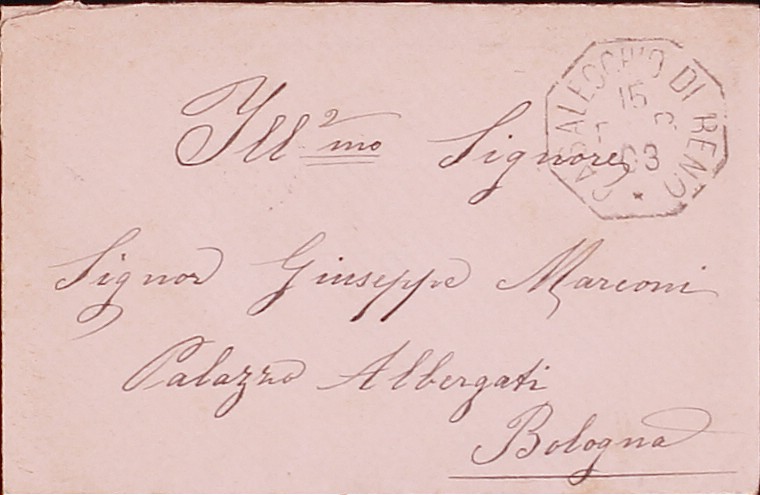 CASALECCHIO DI RENO
15
03
Ill.mo Signore
Signor Giuseppe Marconi
Palazzo Albergati
Bologna